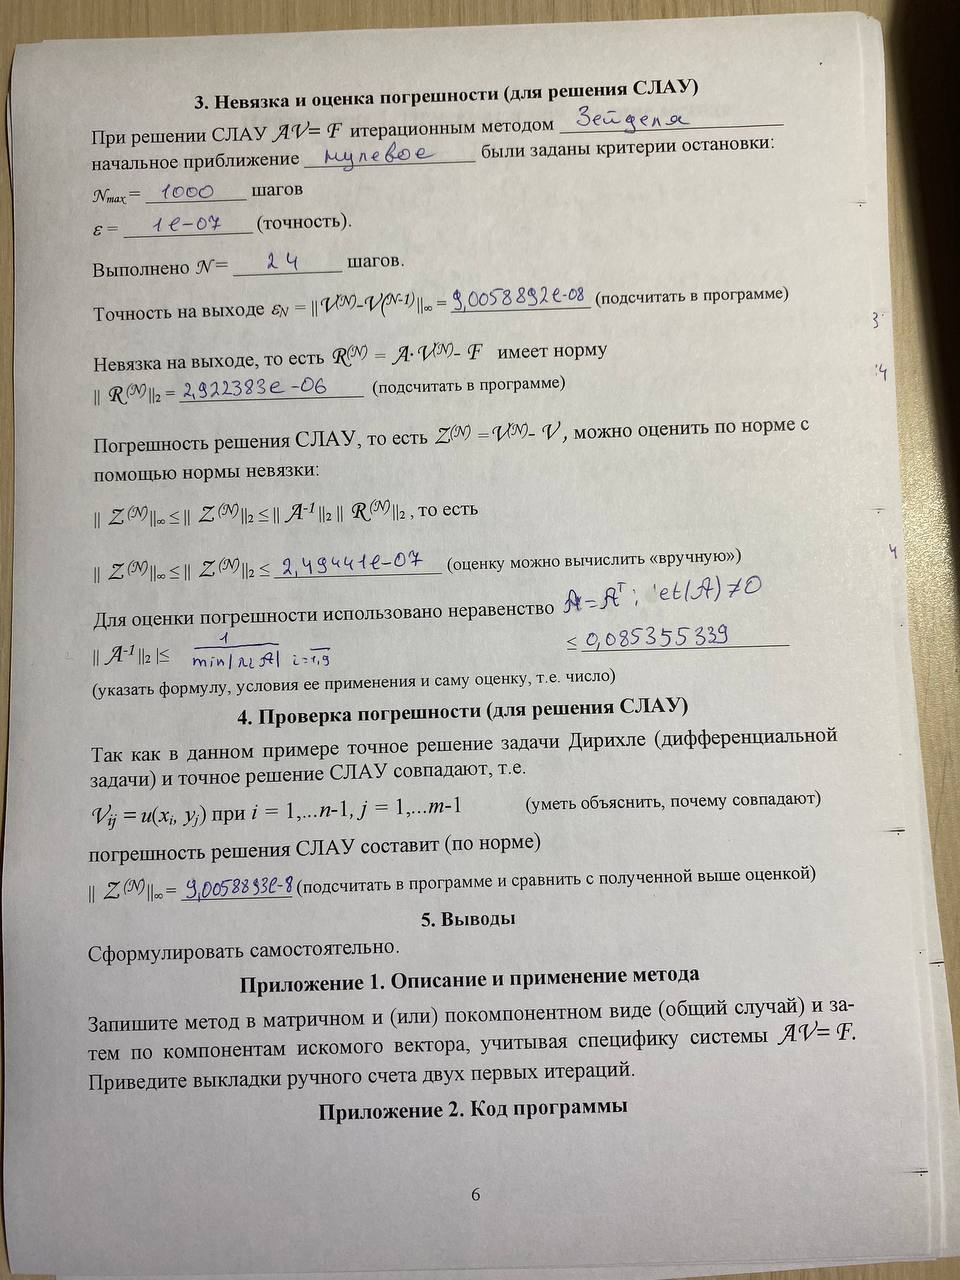 3. Невязка и оценка погрешности (для решения СЛАУ)
При решении СЛАУ AV= F итерационным методом Зейделя
начальное приближение нулевое были заданы критерии остановки:
Nmax = 1000 шагов
ε = 1e-07 (точность).
Выполнено N = 24 шагов.
Точность на выходе εN = ||V(N)-V(N-1)||∞ = 9,0058892e-08 (подсчитать в программе)
3
Невязка на выходе, то есть R(N) = A·V(N)- F имеет норму
|| R(N)||2 = 2,922383e-06 (подсчитать в программе)
4
Погрешность решения СЛАУ, то есть Z(N) =V(N)- V, можно оценить по норме с
помощью нормы невязки:
|| Z(N)||∞ ≤ || Z(N)||2 ≤ || A-1 ||2 || R(N)||2 , то есть
|| Z(N)||∞ ≤ || Z(N)||2 ≤ 2,49441e-07 (оценку можно вычислить «вручную»)
4
Для оценки погрешности использовано неравенство A=Aᵀ; et(A)≠0
|| A-1 ||2 |≤ 1 / min|λi A| i=1,9 ≤ 0,085355339
(указать формулу, условия ее применения и саму оценку, т.е. число)
4. Проверка погрешности (для решения СЛАУ)
Так как в данном примере точное решение задачи Дирихле (дифференциальной
задачи) и точное решение СЛАУ совпадают, т.е.
Vij = u(xi, yj) при i = 1,...n-1, j = 1,...m-1 (уметь объяснить, почему совпадают)
погрешность решения СЛАУ составит (по норме)
|| Z(N)||∞ = 9,0058893e-8 (подсчитать в программе и сравнить с полученной выше оценкой)
5. Выводы
Сформулировать самостоятельно.
Приложение 1. Описание и применение метода
Запишите метод в матричном и (или) покомпонентном виде (общий случай) и за-
тем по компонентам искомого вектора, учитывая специфику системы AV= F.
Приведите выкладки ручного счета двух первых итераций.
Приложение 2. Код программы
6